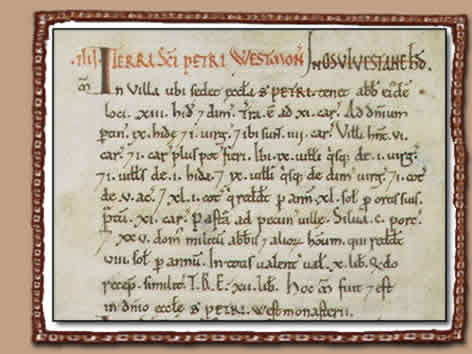 .iiij. TERRA SCI PETRI WESTMON̄ IN OSVLVESTANE hđ.
m̃ In Villa ubi sedet æccła S PETRI. tenet abb̃ eiđe
loci. XIII. hiđ 7 dim̃. Tr̃a. ē ad XI. car̃. Ad dn̄ium
ptin̄. IX. hidę 7 I. uirg̃. 7 ibi sunt. IIII. car̃. Vilłi hn̄t. VI.
car̃. 7 I. car̃ plus pot̃ fieri. Ibi. IX. uilłi q̃sq; de. I. uirg̃.
7 I. uilłs de. I. hida. 7 IX. uilłi q̃sq; de dim̃ uirg̃. 7 I. cot̃
de. V. ac̃. 7 XL. I. cot̃ q̃ redđt p ann̄. XL. sol̃ p ortis suis.
p̃ti. XI. car̃. Pastã ad pecun̄ uillę. Silua. C. porc̃.
7 XXV. dom̃ militũ abb̃is 7 alioȝ hom̃. qui redđt
VIII. sol̃ p annũ. In totis ualent̃ ual̃. X. lib̃. Qdo
recep̃. similit̃. T.R.E. XII. lib̃. Hoc m̃ fuit 7 est
in dn̄io æccłę S PETRI. Westmonasterii.